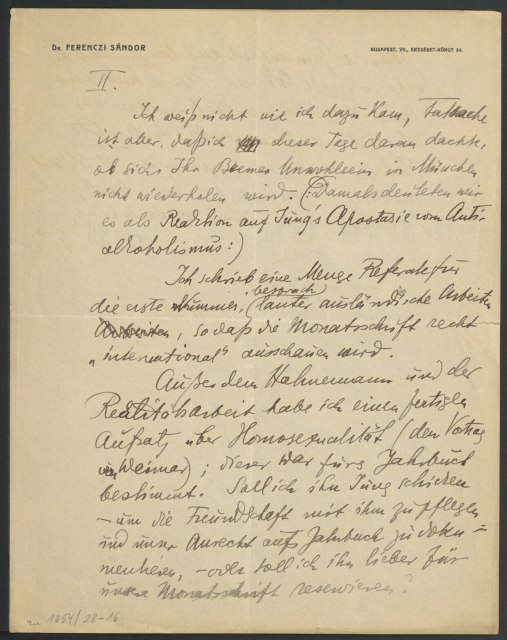 Dr. FERENCZI SÁNDOR
BUDAPEST, VII., ERZSÉBET-KÖRUT 54.
II.
Ich weiß nicht wie ich dazu kam, tatsache
ist aber, daß ich dieser Tage daran dachte,
ob sichs Ihr Bremer Unwohlsein in München
nicht wiederholen wird. (: Damals deuteten wir
es als Reaktion auf Jung's Apostasie vom Anti-
alkoholismus:)
Ich schrieb eine Menge Referate für
die erste Nummer, (besprach lauter ausländische Arbeiten
Arbeiten, sodaß die Monatsschrift recht
"international" ausschauen wird.
Außer dem Hahnemann und der
Realitätsarbeit habe ich einen fertigen
Aufsatz über Homosexualität (den Vortrag
in Weimar); dieser war fürs Jahrbuch
bestimmt. Soll ich ihn Jung schicken
– um die Freundschaft mit ihm zu pflegen
und unser Anrecht aufs Jahrbuch zu doku-
mentieren, – oder soll ich ihn lieber für
unsere Monatsschrift reservieren?
1054/28-16